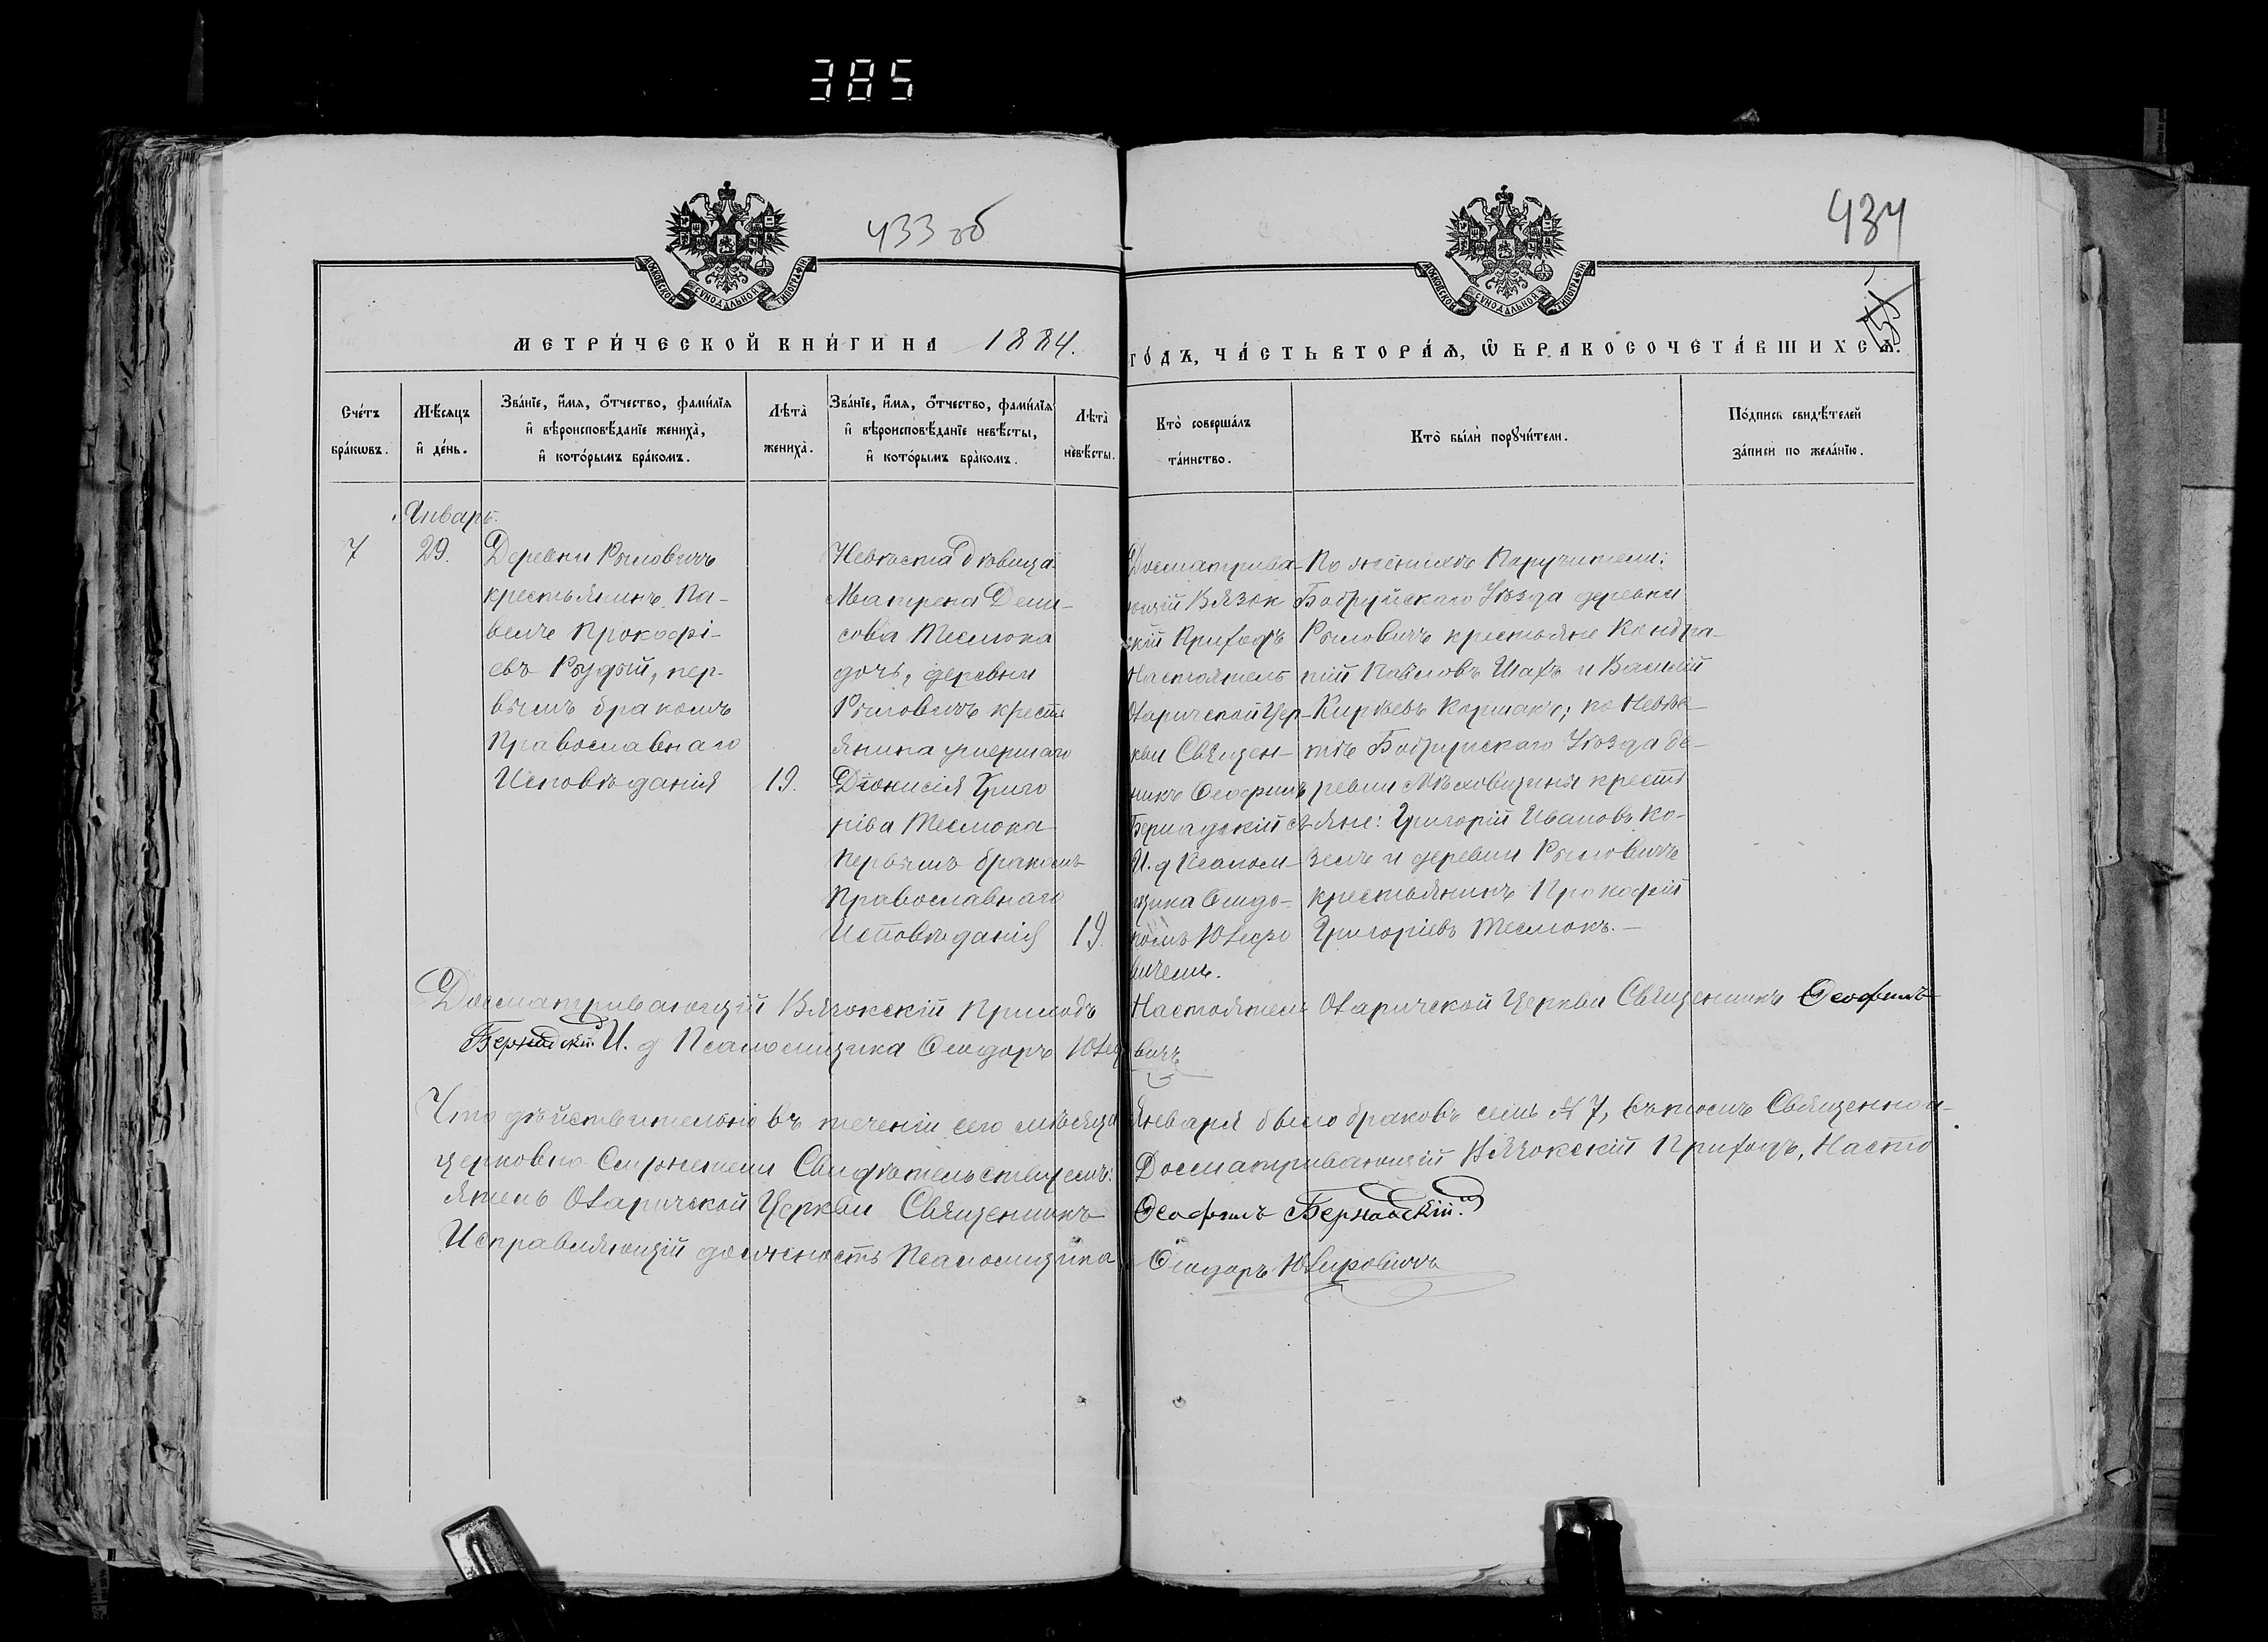 385
433 об
434
МОСКОВСКОЙ СѴНОДАЛЬНОЙ ТИПОГРАФІИ
МОСКОВСКОЙ СѴНОДАЛЬНОЙ ТИПОГРАФІИ
МЕТРИ́ЧЕСКОЙ КНИ́ГИ НА 1884.
ГО́ДЪ, ЧА́СТЬ ВТОРА́Ѧ, Ѽ БРАКОСОЧЕТА́ВШИХСѦ.
Сче́тъ
бра́кѡвъ.
Мѣ́сяцъ
и҆ де́нь.
Зва́нїе, и҆́мя, о҆́тчество, фами́лїя
и҆ вѣроисповѣ́данїе жениха̀,
и҆ кото́рымъ бра́комъ.
Лѣта̀
жениха̀.
Зва́нїе, и҆́мя, о҆́тчество, фами́лїя
и҆ вѣроисповѣ́данїе невѣ́сты,
и҆ кото́рымъ бра́комъ.
Лѣта̀
невѣ́сты.
Кто̀ соверша́лъ
та́инство.
Кто̀ бы́ли порꙋчи́тели.
По́дпись свидѣ́телей
за́писи по жела́нїю.
Январь.
7
29.
Деревни Рымовичъ
крестьянинъ Па-
велъ Прокофі-
евъ Рудый, пер-
вымъ бракомъ
Православнаго
Исповѣданія
19.
Невѣста дѣвица
Матрена Дени-
сова Теслюка
дочь, деревни
Рымовичъ кресть
янина умершаго
Діонисія Григо
ріва Теслюка
первымъ бракомъ
Православнаго
Исповѣданія
19.
Досматрива-
ющій Вязок
скій Приходъ
Настоятель
Отаричской Цер-
кви Священ-
никъ Ѳеофилъ
Бернадскій съ
И. д Псалом-
щика Ѳедо-
ромъ
вичемъ.
По женихѣ Поручители:
Бобруйскаго Уѣзда деревни
Рымовичъ крестьяне Кондра-
тій Павловъ Шахъ и Василій
Киреевъ Коршакъ; по Невѣс-
тѣ Бобруйскаго Уѣзда де-
ревни кресть
яне: Григорій Ивановъ Ко-
зелъ и деревни Рымовичъ
крестьянинъ Прокофій
Григоріевъ Теслюкъ.
Досматривающій Вязокскій Приходъ Настоятель Отаричской Церкви Священникъ Ѳеофилъ
Бернадскій. И. д Псаломщика Ѳедоръ
Что дѣйствительно въ теченіи сего мѣсяца Января было браковъ семь № 7, въ томъ Священно
церковно Служители Свидѣтельствуемъ: Досматривающій Вязокскій Приходъ, Насто
ятель Отаричской Церкви Священникъ Ѳеофилъ Бернадскій.
Исправляющій должность Псаломщика Ѳедоръ